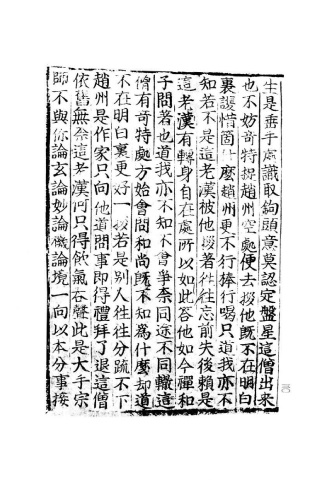 生是垂手處識取鉤頭意莫認定盤星這僧出來
也不妨奇特捉趙州空處便去拶他既不在明白
裏護惜箇什麼趙州更不行棒行喝只道我亦不
知若不是這老漢被他拶著往往忘前失後賴是
這老漢有轉身自在處所以如此答他如今禪和
子問著也道我亦不知不會爭奈同途不同轍這
僧有奇特處方始會問和尚既不知為什麼却道
不在明白裏更好一拶若是別人往往分疏不下
趙州是作家只向他道問事即得禮拜了退這僧
依舊無奈這老漢何只得飲氣吞聲此是大手宗
師不與你論玄論妙論機論境一向以本分事接